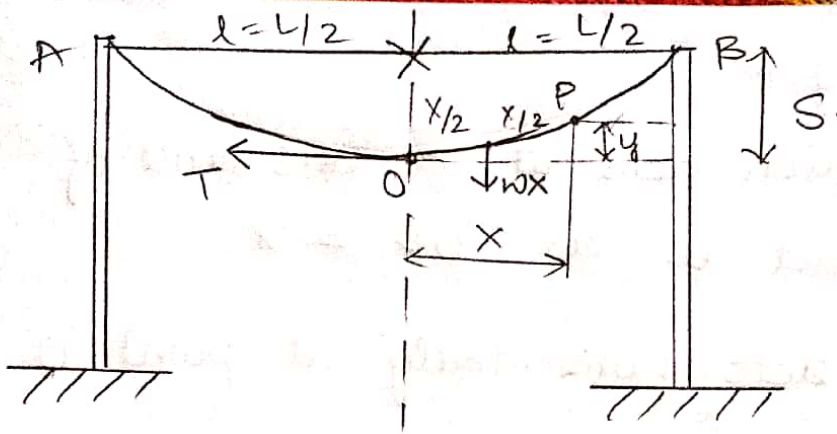 A l = L/2 l = L/2 B
S
P
x/2 x/2
y
T O wx
x